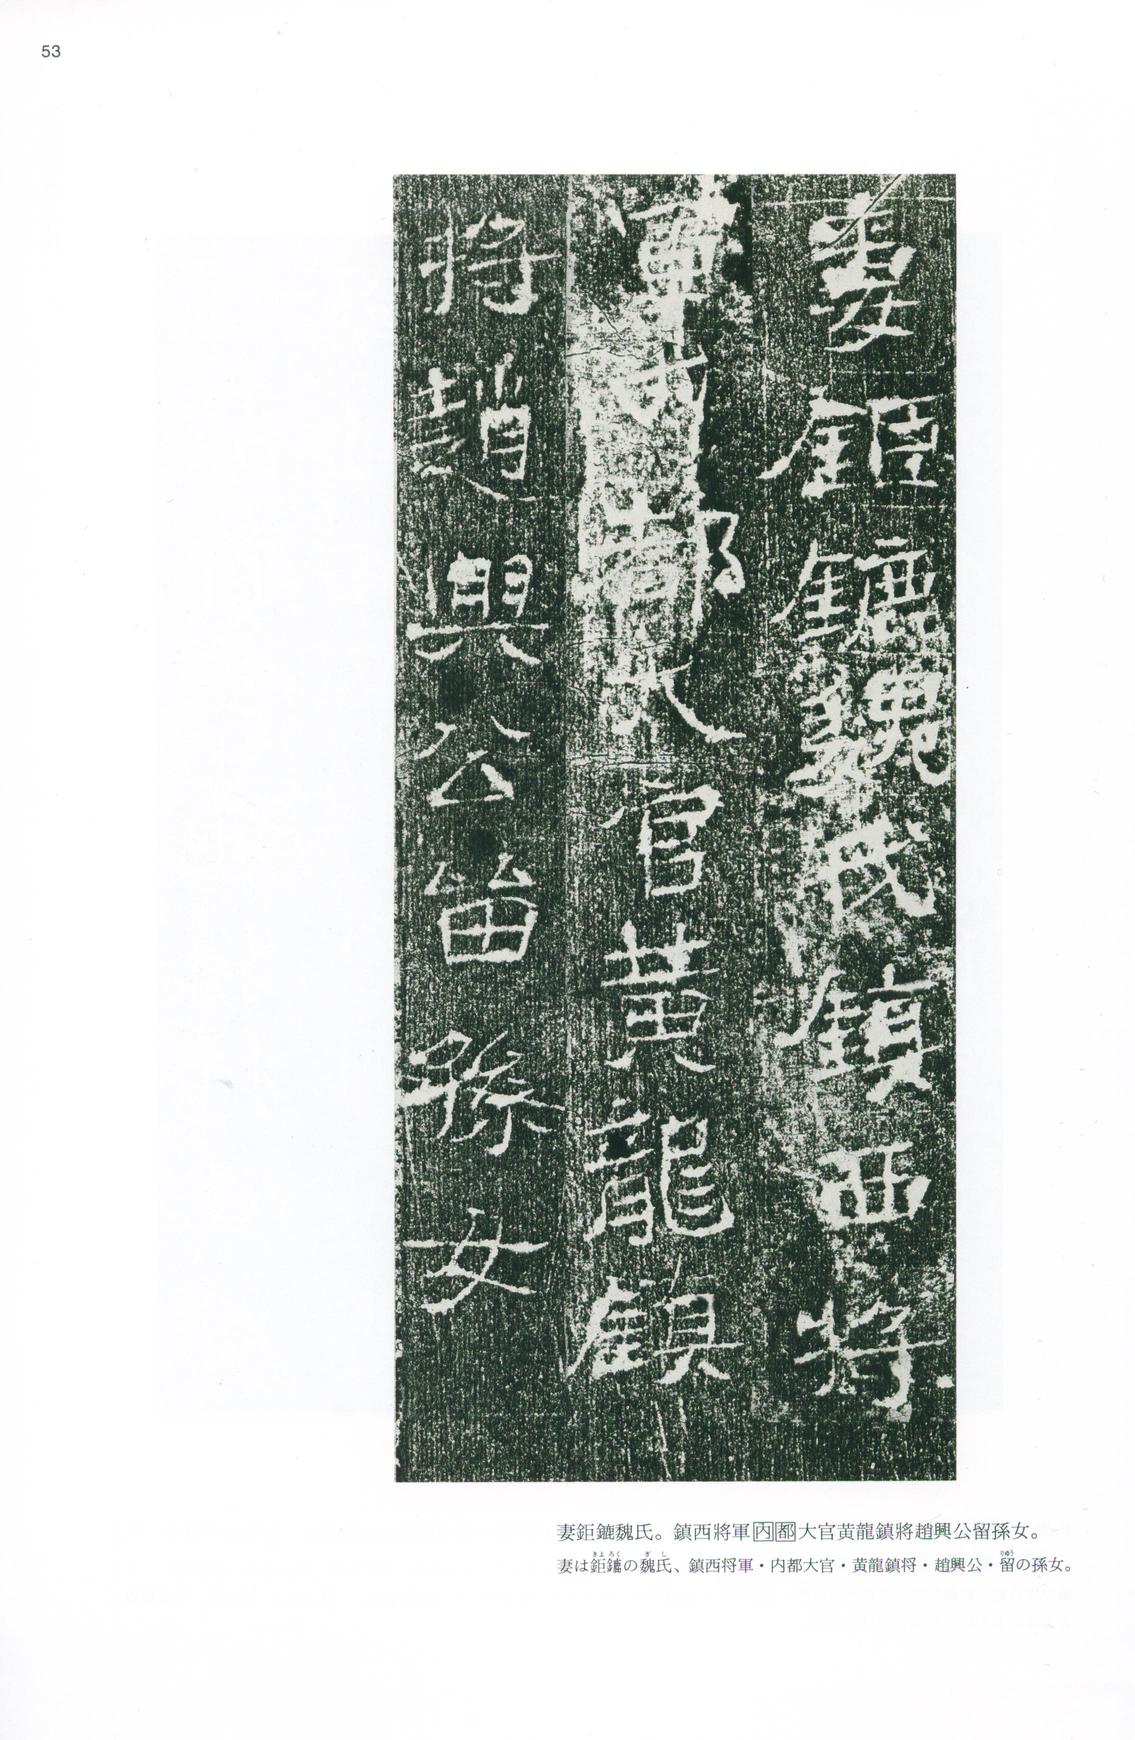 53
妻鉅鏕魏氏鎮西將
軍内都大官黄龍鎮
將趙興公留孫女
妻鉅鏕魏氏。鎮西將軍内都大官黄龍鎮將趙興公留孫女。
妻は鉅鏕の魏氏、鎮西将軍・内都大官・黄龍鎮将・趙興公・留の孫女。
きよろく
ぎし
りゆう